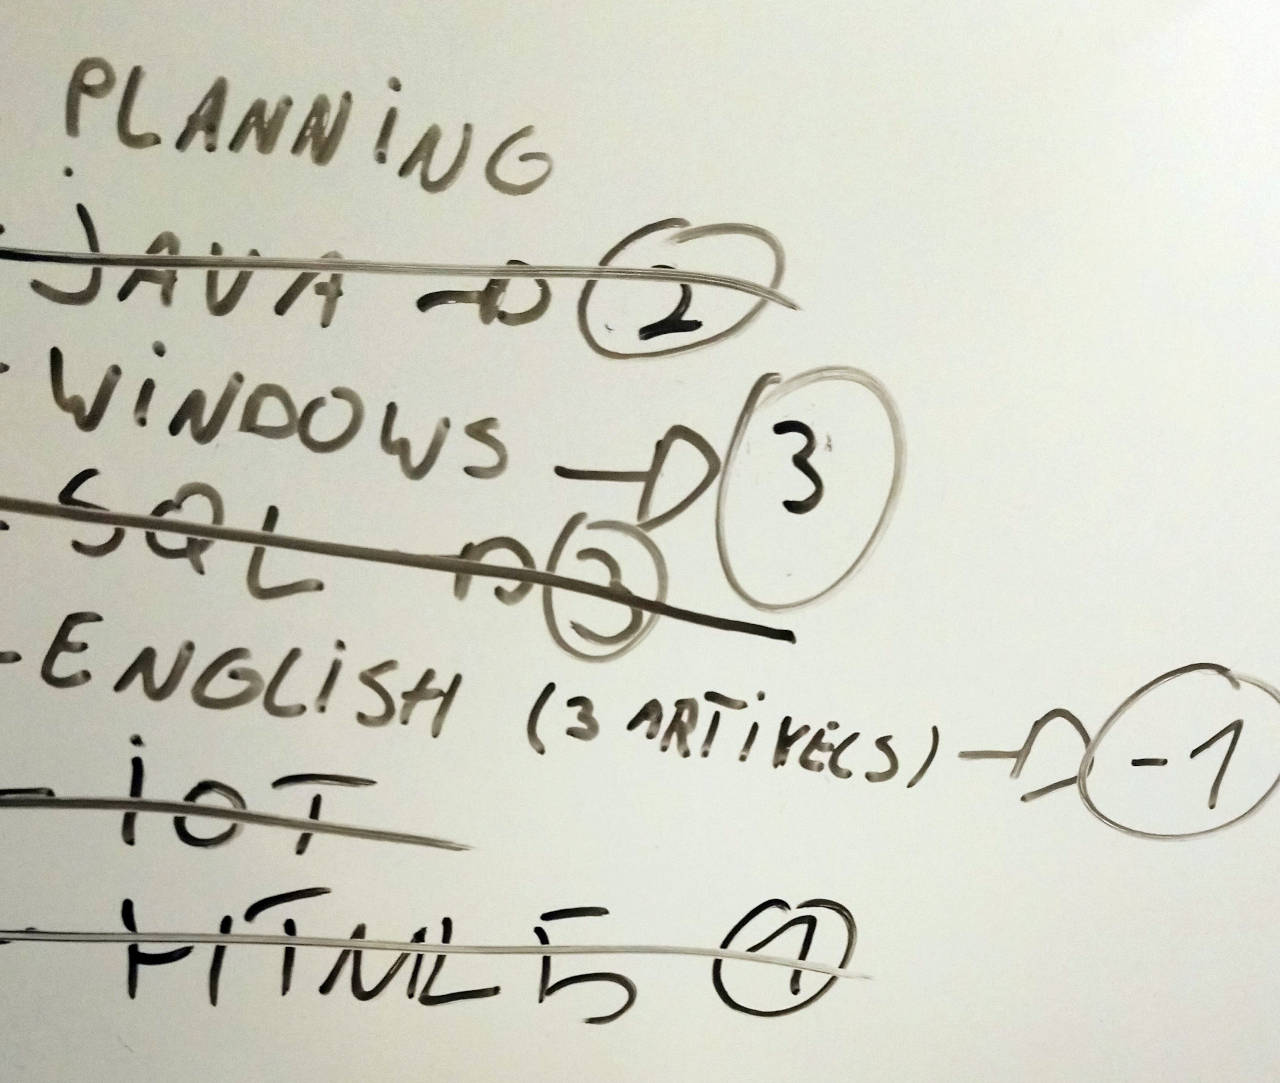 PLANNING
- JAVA → 2
- WINDOWS → 3
- SQL → 3
- ENGLISH (3 ARTIKELS) → -1
- IOT
- HTML5 1